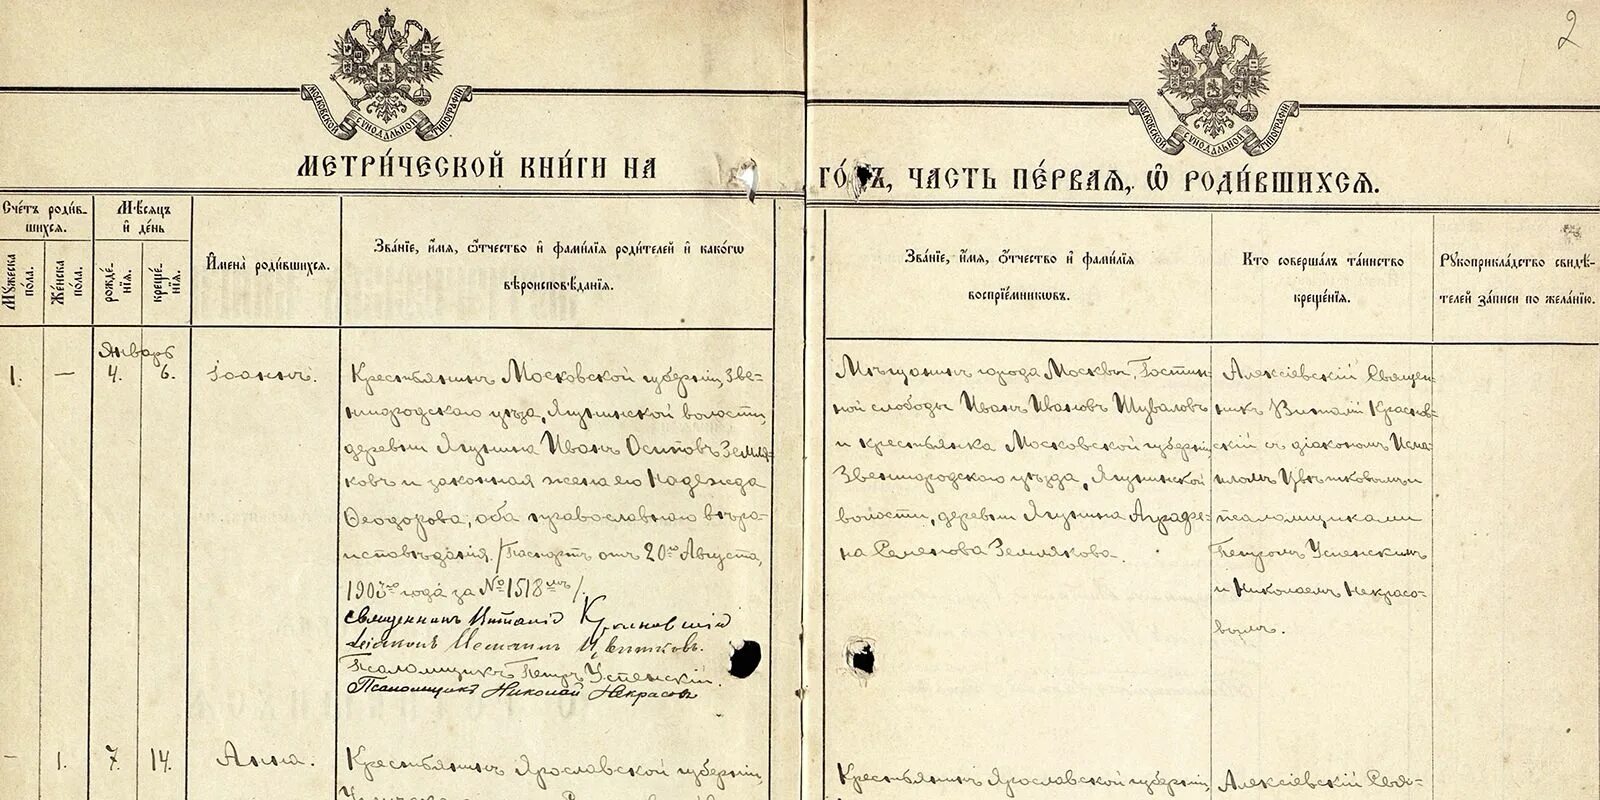 2
МОСКОВСКОЙ СѴНОДАЛЬНОЙ ТИПОГРАФІИ
МОСКОВСКОЙ СѴНОДАЛЬНОЙ ТИПОГРАФІИ
МЕТРИ́ЧЕСКОЙ КНИ́ГИ НА
ГО́ Ъ, ЧАСТЬ ПЕ́РВАЯ, Ѡ РОДИ́ВШИХСЯ.
Сче́тъ роди́в-
шихся.
Мѣсяцъ
и҆ де́нь
Мꙋ́жеска
по́ла.
Же́нска
по́ла.
рожде́-
нїя.
креще́-
нїя.
И҆мена̀ роди́вшихся.
Зва́нїе, и҆́мя, ѻ҆́тчество и҆ фами́лїя роди́телей и҆ како́гѡ
вѣроисповѣ́данїя.
Зва́нїе, и҆́мя, ѻ҆́тчество и҆ фами́лїя
воспрїе́мникѡвъ.
Кто̀ соверша́лъ та́инство
креще́нїя.
Рꙋкоприкла́дство свидѣ́-
телей за́писи по жела́нїю.
Январь
1. — 4. 6. Іоаннъ.
Крестьянинъ Московской губерніи, Зве-
нигородскаго уѣзда, Ягунинской волости,
деревни Ягунина Иванъ Осиповъ Земля-
ковъ и законная жена его Надежда
Ѳеодорова, оба православнаго вѣро-
исповѣданія. /Паспортъ отъ 20го Августа,
1903го года за № 1518мъ/.
Священникъ Виталій Красновскій
Діаконъ Исмаилъ Цвѣтковъ.
Псаломщикъ Петръ Успенскій.
Псаломщикъ Николай Некрасовъ
Мѣщанинъ города Москвы, Гостин-
ной слободы Иванъ Ивановъ Шуваловъ
и крестьянка Московской губерніи
Звенигородскаго уѣзда, Ягунинской
волости, деревни Ягунина Аграфе-
на Семенова Землякова.
Алексіевскій Священ-
никъ Виталій Краснов-
скій съ діакономъ Исма-
иломъ Цвѣтковымъ и
псаломщиками
Петромъ Успенскимъ
и Николаемъ Некрасо-
вымъ.
— 1. 7. 14. Анна.
Крестьянинъ Ярославской губерніи,
Крестьянинъ Ярославской губерніи,
Алексіевскій Свя-